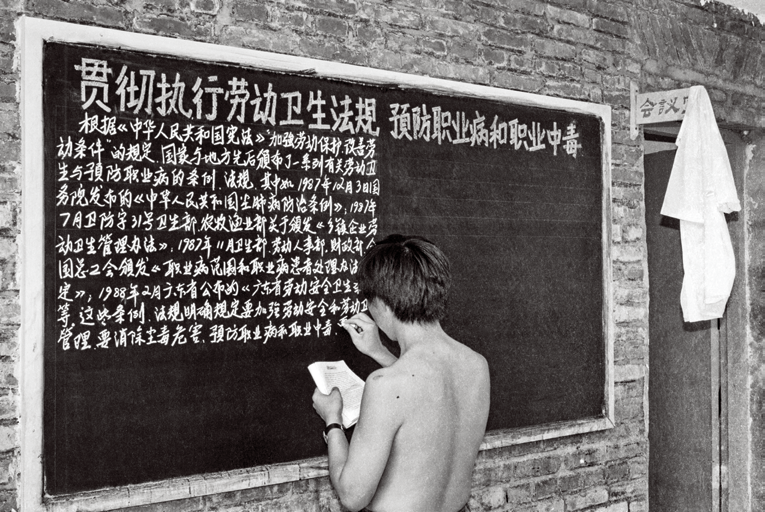 贯彻执行劳动卫生法规 预防职业病和职业中毒
根据《中华人民共和国宪法》"加强劳动保护,改善劳
动条件"的规定,国家与地方先后颁布了一系列有关劳动卫
生与预防职业病的条例、法规。其中如1987年12月3日国
务院发布的《中华人民共和国尘肺病防治条例》;1987年
7月卫防字31号卫生部、农牧渔业部关于颁发《乡镇企业劳
动卫生管理办法》,1987年11月卫生部、劳动人事部、财政部、全
国总工会颁发《职业病范围和职业病患者处理办法
定》;1988年2月广东省公布的《广东省劳动安全卫生
等。这些条例、法规明确规定要加强劳动安全和劳动卫
管理,要消除尘毒危害,预防职业病和职业中毒。
会議